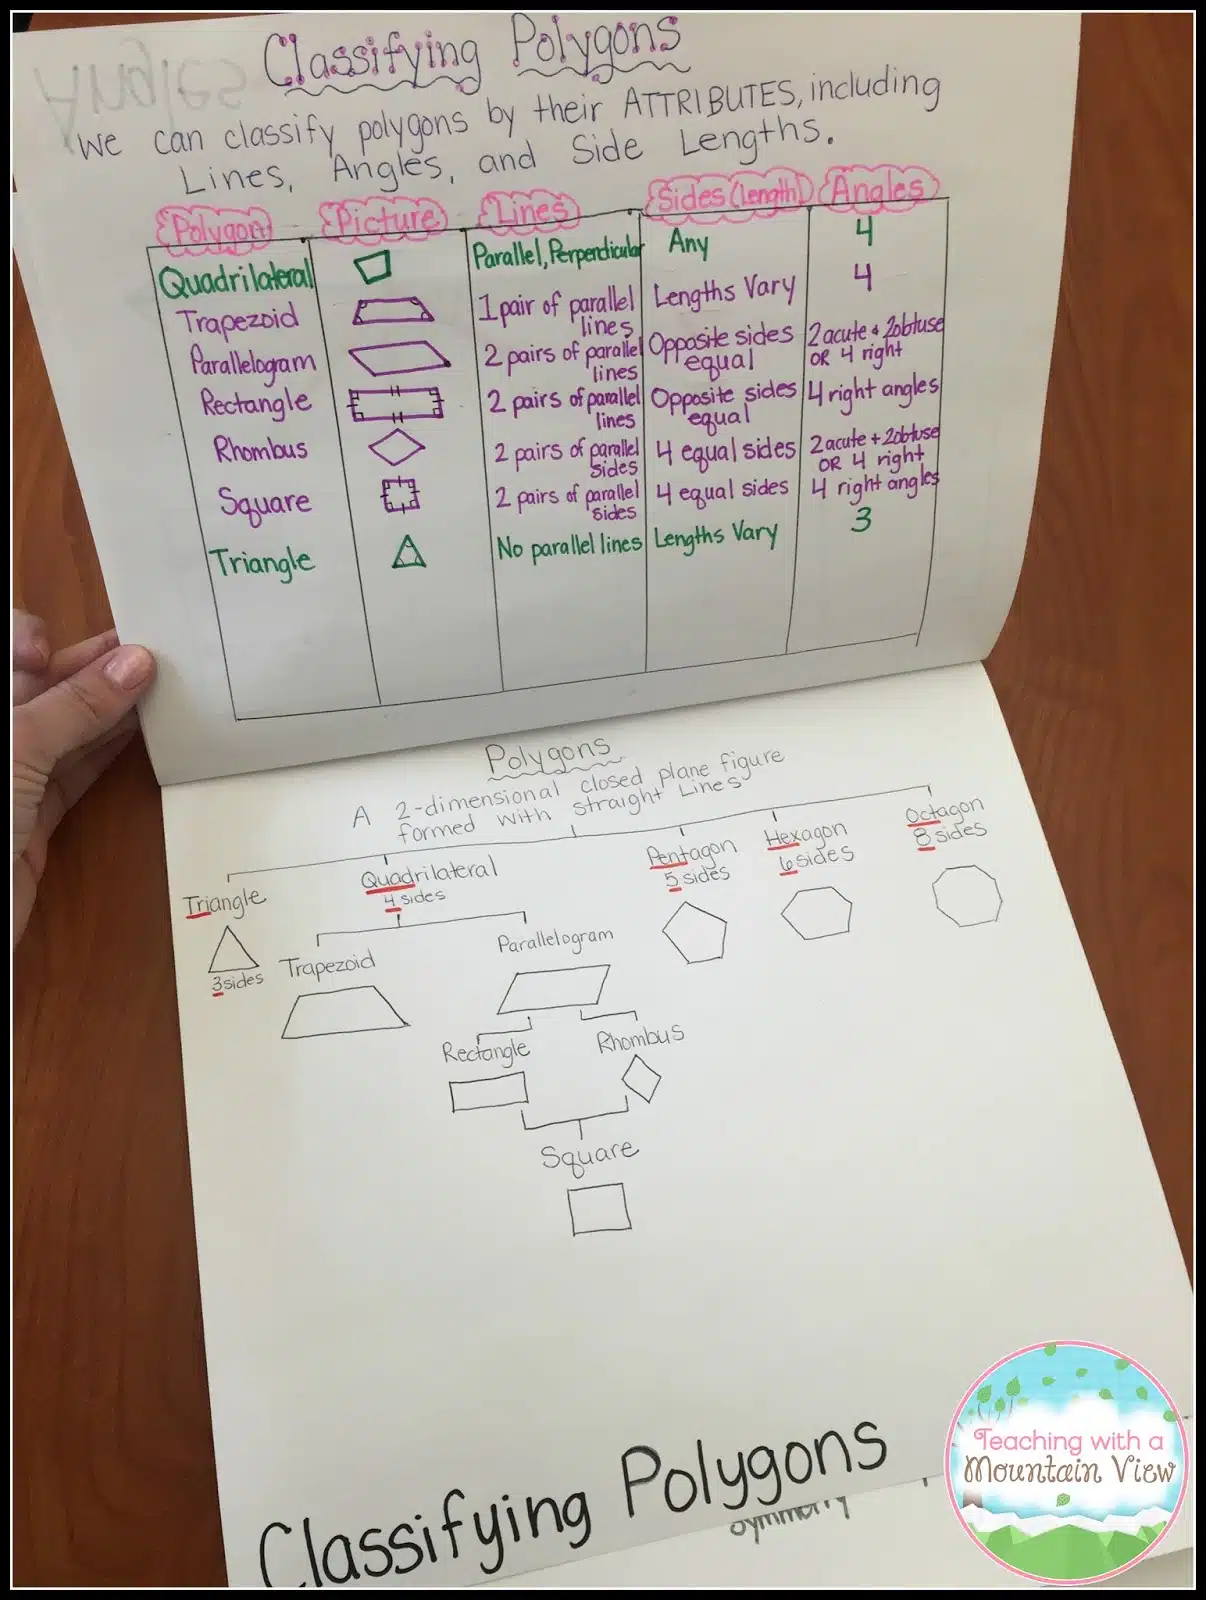 Classifying Polygons
We can classify polygons by their ATTRIBUTES, including
Lines, Angles, and Side Lengths.
Polygon Picture Lines Sides (length) Angles
Quadrilateral Parallel, Perpendicular Any 4
Trapezoid 1 pair of parallel lines Lengths Vary 4
Parallelogram 2 pairs of parallel lines Opposite sides equal 2 acute + 2 obtuse OR 4 right
Rectangle 2 pairs of parallel lines Opposite sides equal 4 right angles
Rhombus 2 pairs of parallel sides 4 equal sides 2 acute + 2 obtuse OR 4 right
Square 2 pairs of parallel sides 4 equal sides 4 right angles
Triangle No parallel lines Lengths Vary 3
Polygons
A 2-dimensional closed plane figure
formed with straight Lines
Triangle
3 sides
Quadrilateral
4 sides
Pentagon
5 sides
Hexagon
6 sides
Octagon
8 sides
Trapezoid
Parallelogram
Rectangle
Rhombus
Square
Classifying Polygons
Symmetry
Teaching with a
Mountain View
Angles